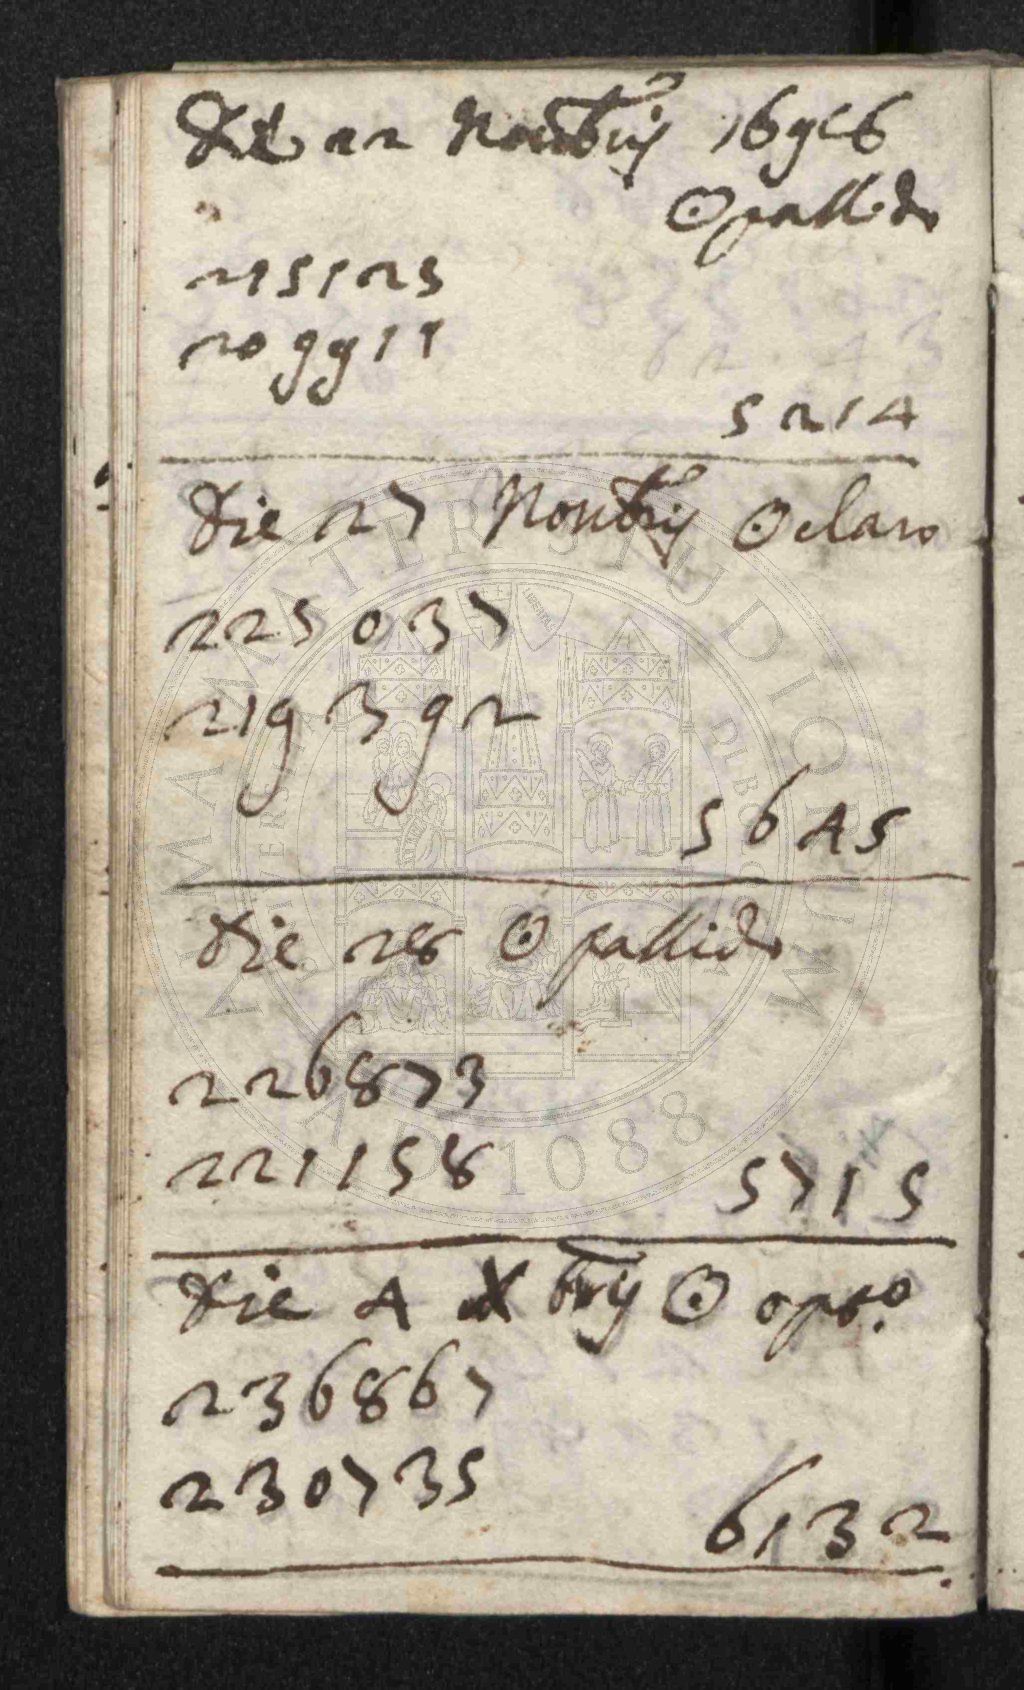 Die 22 Noubrij 1696
☉ pallido
215125
209911
5214
Die 27 Noubrij ☉ claro
225037
219392
5645
Die 28 ☉ pallido
226873
221158
5715
Die 4 Xbrij ☉ opto.
236867
230735
6132
ALMA MATER STUDIORUM
A.D. 1088